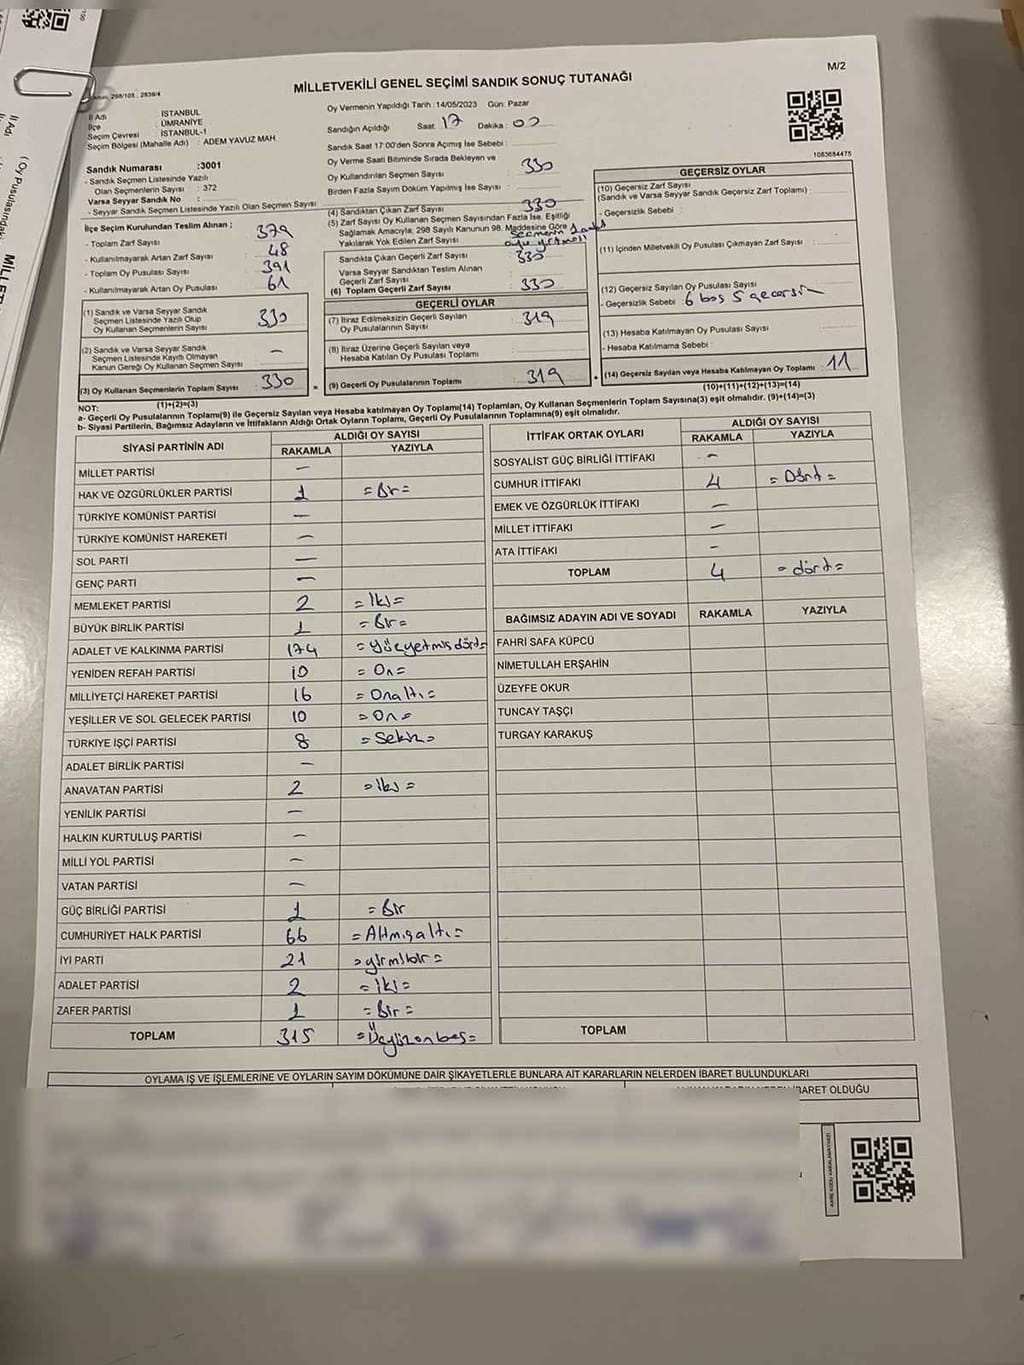 M/2
MİLLETVEKİLİ GENEL SEÇİMİ SANDIK SONUÇ TUTANAĞI
298/105 - 2839/4
İl Adı : İSTANBUL
İlçe : ÜMRANİYE
Seçim Çevresi : İSTANBUL-1
Seçim Bölgesi (Mahalle Adı) : ADEM YAVUZ MAH.
Sandık Numarası :3001
- Sandık Seçmen Listesinde Yazılı
Olan Seçmenlerin Sayısı : 372
Varsa Seyyar Sandık No :
- Seyyar Sandık Seçmen Listesinde Yazılı Olan Seçmen Sayısı :
İlçe Seçim Kurulundan Teslim Alınan ;
- Toplam Zarf Sayısı : 379
- Kullanılmayarak Artan Zarf Sayısı : 48
- Toplam Oy Pusulası Sayısı : 391
- Kullanılmayarak Artan Oy Pusulası : 61
(1) Sandık ve Varsa Seyyar Sandık
Seçmen Listesinde Yazılı Olup
Oy Kullanan Seçmenlerin Sayısı 330
(2) Sandık ve Varsa Seyyar Sandık
Seçmen Listesinde Kayıtlı Olmayan
Kanun Gereği Oy Kullanan Seçmen Sayısı —
(3) Oy Kullanan Seçmenlerin Toplam Sayısı 330
(1)+(2)=(3)
Oy Vermenin Yapıldığı Tarih :14/05/2023 Gün: Pazar
Sandığın Açıldığı Saat: 17 Dakika: 00
Sandık Saat 17.00'den Sonra Açımış İse Sebebi :
Oy Verme Saati Bitiminde Sırada Bekleyen ve
Oy Kullandırılan Seçmen Sayısı : 330
Birden Fazla Sayım Döküm Yapılmış İse Sayısı :
(4) Sandıktan Çıkan Zarf Sayısı : 330
(5) Zarf Sayısı Oy Kullanan Seçmen Sayısından Fazla İse, Eşitliği
Sağlamak Amacıyla, 298 Sayılı Kanunun 98. Maddesine Göre
Yakılarak Yok Edilen Zarf Sayısı :
Sandıkta Çıkan Geçerli Zarf Sayısı : 330
Varsa Seyyar Sandıktan Teslim Alınan
Geçerli Zarf Sayısı :
(6) Toplam Geçerli Zarf Sayısı : 330
GEÇERLİ OYLAR
(7) İtiraz Edilmeksizin Geçerli Sayılan
Oy Pusulalarının Sayısı : 319
(8) İtiraz Üzerine Geçerli Sayılan veya
Hesaba Katılan Oy Pusulası Toplamı :
(9) Geçerli Oy Pusulalarının Toplamı 319
1083684475
GEÇERSİZ OYLAR
(10) Geçersiz Zarf Sayısı
(Sandık ve Varsa Seyyar Sandık Geçersiz Zarf Toplamı) :
- Geçersizlik Sebebi :
(11) İçinden Milletvekili Oy Pusulası Çıkmayan Zarf Sayısı :
(12) Geçersiz Sayılan Oy Pusulası Sayısı :
- Geçersizlik Sebebi : 6 boş 5 geçersiz
(13) Hesaba Katılmayan Oy Pusulası Sayısı :
- Hesaba Katılmama Sebebi :
(14) Geçersiz Sayılan veya Hesaba Katılmayan Oy Toplamı : 11
(10)+(11)+(12)+(13)=(14)
NOT:
a- Geçerli Oy Pusulalarının Toplamı(9) ile Geçersiz Sayılan veya Hesaba katılmayan Oy Toplamı(14) Toplamları, Oy Kullanan Seçmenlerin Toplam Sayısına(3) eşit olmalıdır. (9)+(14)=(3)
b- Siyasi Partilerin, Bağımsız Adayların ve İttifakların Aldığı Ortak Oyların Toplamı, Geçerli Oy Pusulalarının Toplamına(9) eşit olmalıdır.
SİYASİ PARTİNİN ADI ALDIĞI OY SAYISI
RAKAMLA YAZIYLA
MİLLET PARTİSİ —
HAK VE ÖZGÜRLÜKLER PARTİSİ 1 =Bir=
TÜRKİYE KOMÜNİST PARTİSİ —
TÜRKİYE KOMÜNİST HAREKETİ —
SOL PARTİ —
GENÇ PARTİ —
MEMLEKET PARTİSİ 2 =İki=
BÜYÜK BİRLİK PARTİSİ 1 =Bir=
ADALET VE KALKINMA PARTİSİ 174 =Yüzyetmişdört=
YENİDEN REFAH PARTİSİ 10 =On=
MİLLİYETÇİ HAREKET PARTİSİ 16 =Onaltı=
YEŞİLLER VE SOL GELECEK PARTİSİ 10 =On=
TÜRKİYE İŞÇİ PARTİSİ 8 =Sekiz=
ADALET BİRLİK PARTİSİ —
ANAVATAN PARTİSİ 2 =İki=
YENİLİK PARTİSİ —
HALKIN KURTULUŞ PARTİSİ —
MİLLİ YOL PARTİSİ —
VATAN PARTİSİ —
GÜÇ BİRLİĞİ PARTİSİ 1 =Bir
CUMHURİYET HALK PARTİSİ 66 =Altmışaltı=
İYİ PARTİ 21 =yirmibir=
ADALET PARTİSİ 2 =İki=
ZAFER PARTİSİ 1 =Bir=
TOPLAM 315 =Üçyüzonbeş=
İTTİFAK ORTAK OYLARI ALDIĞI OY SAYISI
RAKAMLA YAZIYLA
SOSYALİST GÜÇ BİRLİĞİ İTTİFAKI —
CUMHUR İTTİFAKI 4 =Dört=
EMEK VE ÖZGÜRLÜK İTTİFAKI —
MİLLET İTTİFAKI —
ATA İTTİFAKI —
TOPLAM 4 =dört=
BAĞIMSIZ ADAYIN ADI VE SOYADI RAKAMLA YAZIYLA
FAHRİ SAFA KÜPCÜ
NİMETULLAH ERŞAHİN
ÜZEYFE OKUR
TUNCAY TAŞÇI
TURGAY KARAKUŞ
TOPLAM
OYLAMA İŞ VE İŞLEMLERİNE VE OYLARIN SAYIM DÖKÜMÜNE DAİR ŞİKAYETLERLE BUNLARA AİT KARARLARIN NELERDEN İBARET BULUNDUKLARI
İBARET OLDUĞU